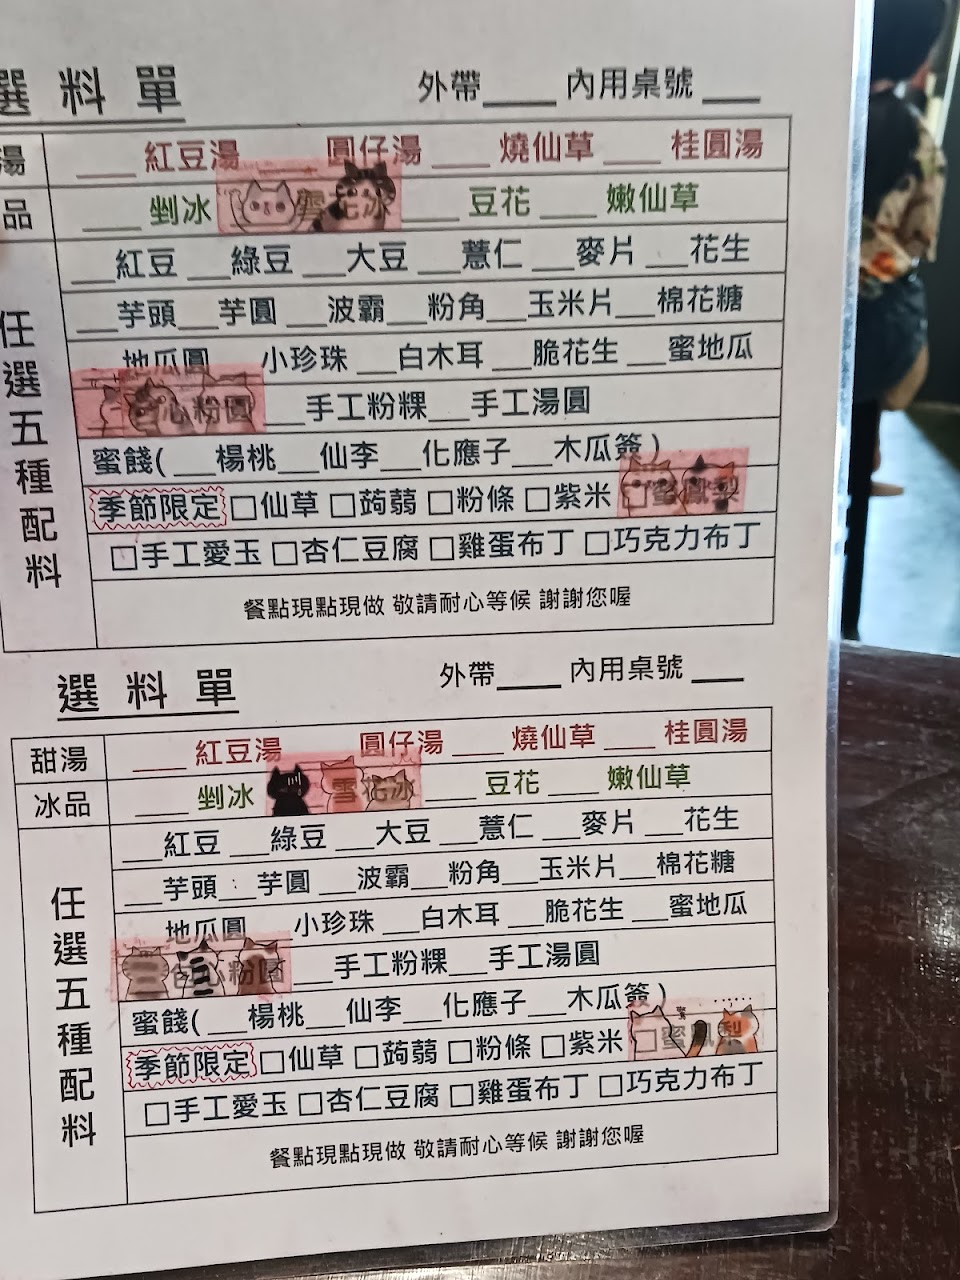 選料單 外帶____ 內用桌號____
湯 ____紅豆湯 圓仔湯 ____燒仙草 ____桂圓湯
品 ____剉冰 雪花冰 ____豆花 ____嫩仙草
任選五種配料
___紅豆 ___綠豆 ___大豆 ___薏仁 ___麥片 ___花生
___芋頭 ___芋圓 ___波霸 ___粉角 ___玉米片 ___棉花糖
地瓜圓 小珍珠 ___白木耳 ___脆花生 ___蜜地瓜
心粉圓 ___手工粉粿 ___手工湯圓
蜜餞( ___楊桃 ___仙李 ___化應子 ___木瓜簽 )
季節限定 □仙草 □蒟蒻 □粉條 □紫米 □蜜鳳梨
□手工愛玉 □杏仁豆腐 □雞蛋布丁 □巧克力布丁
餐點現點現做 敬請耐心等候 謝謝您喔
選料單 外帶____ 內用桌號____
甜湯 ____紅豆湯 圓仔湯 ____燒仙草 ____桂圓湯
冰品 ____剉冰 雪花冰 ____豆花 ____嫩仙草
任選五種配料
___紅豆 ___綠豆 ___大豆 ___薏仁 ___麥片 ___花生
___芋頭 芋圓 ___波霸 ___粉角 ___玉米片 ___棉花糖
地瓜圓 小珍珠 ___白木耳 ___脆花生 ___蜜地瓜
心粉圓 ___手工粉粿 ___手工湯圓
蜜餞( ___楊桃 ___仙李 ___化應子 ___木瓜簽 )
季節限定 □仙草 □蒟蒻 □粉條 □紫米 □蜜鳳梨
□手工愛玉 □杏仁豆腐 □雞蛋布丁 □巧克力布丁
餐點現點現做 敬請耐心等候 謝謝您喔